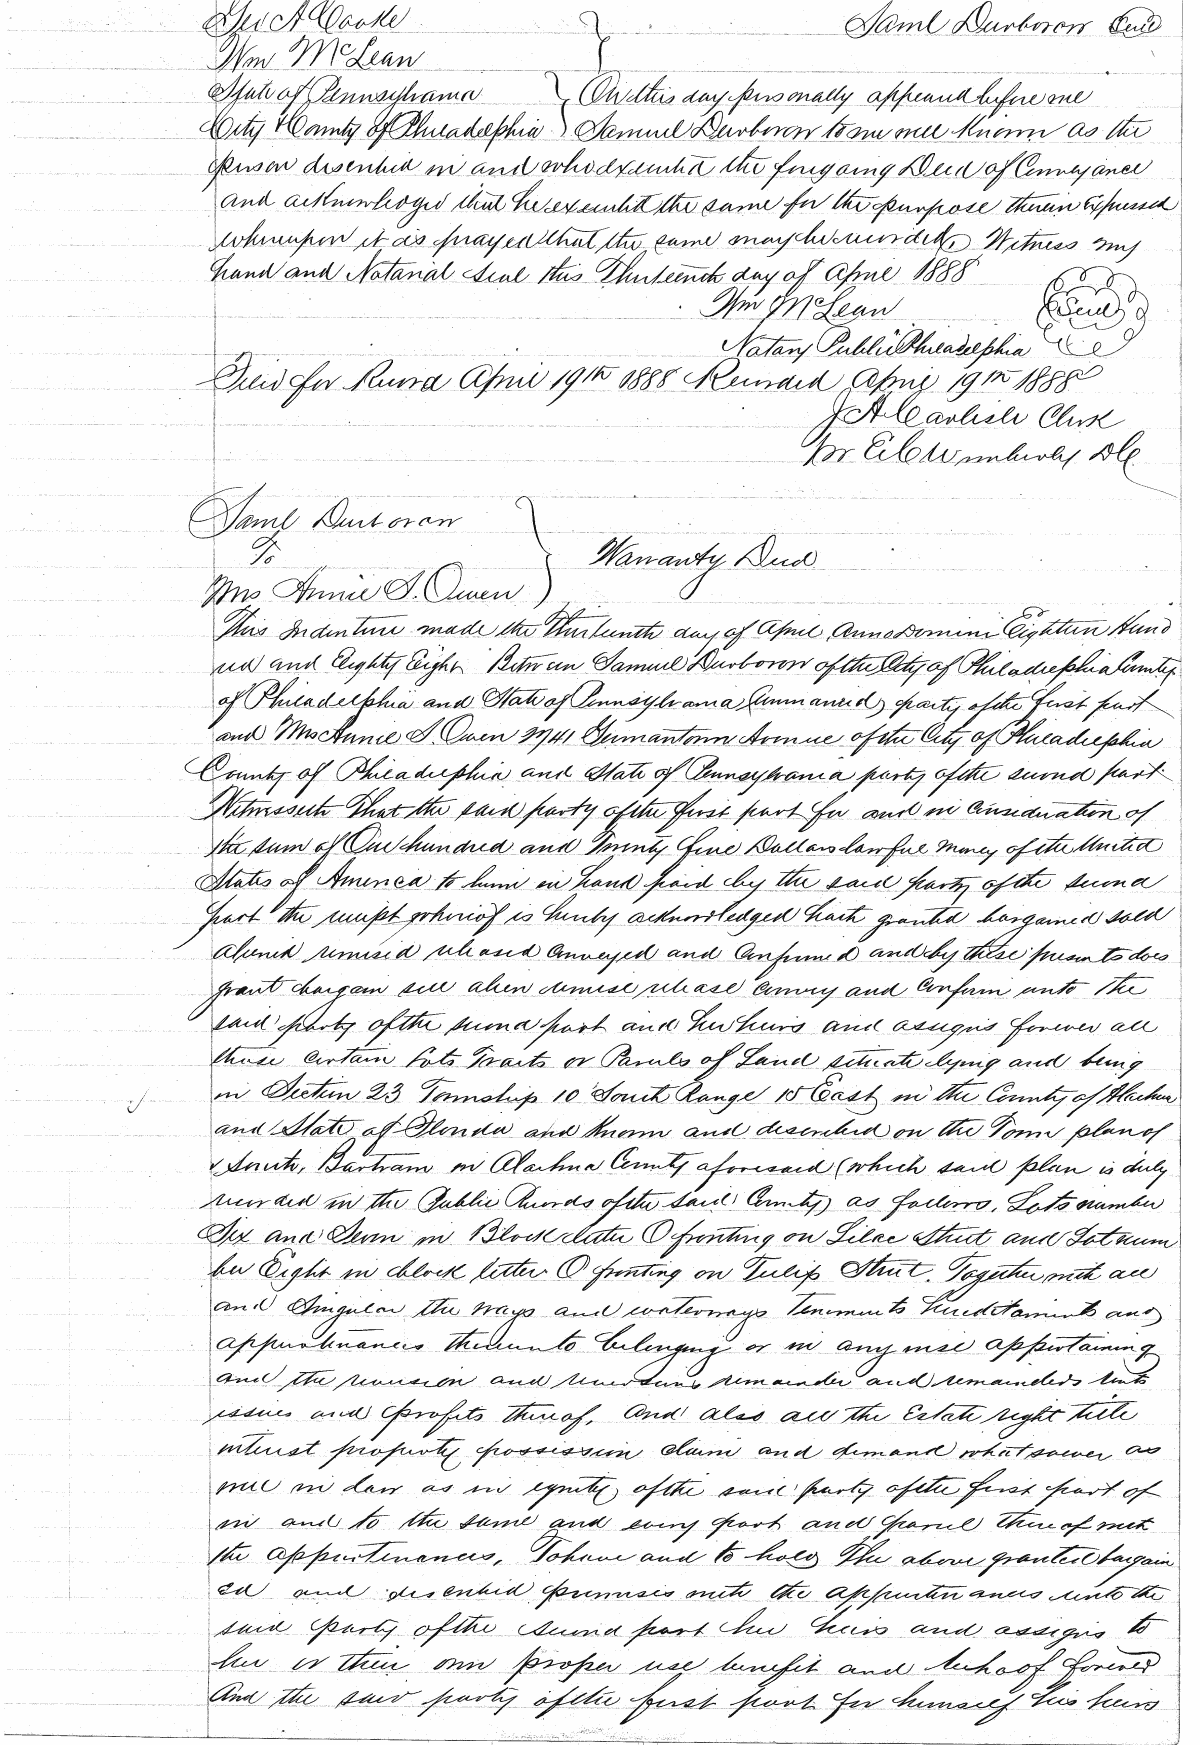 Geo A Cooke Saml Durborow Seal
Wm McLean
State of Pennsylvania } On this day personally appeared before me
City & County of Philadelphia } Samuel Durborow to me well known as the
person described in and who executed the foregoing Deed of Conveyance
and acknowledged that he executed the same for the purpose therein expressed
whereupon it is prayed that the same may be recorded. Witness my
hand and Notarial Seal this Thirteenth day of April 1888
Wm McLean Seal
Notary Public Philadelphia
Filed for Record April 19th 1888 Recorded April 19th 1888
J A Carlisle Clerk
Pr E C Wimberly DC
Saml Durborow
To } Warranty Deed
Mrs Annie S. Owen
This Indenture made the Thirteenth day of April Anno Domini Eighteen Hund
red and Eighty Eight Between Samuel Durborow of the City of Philadelphia County
of Philadelphia and State of Pennsylvania (unmarried) party of the first part
and Mrs Annie S. Owen Germantown Avenue of the City of Philadelphia
County of Philadelphia and State of Pennsylvania party of the second part
Witnesseth That the said party of the first part for and in consideration of
the sum of One hundred and Twenty five Dollars lawful money of the United
States of America to him in hand paid by the said party of the second
part the receipt whereof is hereby acknowledged hath granted bargained sold
aliened remised released conveyed and confirmed and by these presents does
grant bargain sell alien remise release convey and confirm unto the
said party of the second part and her heirs and assigns forever all
those certain Lots Tracts or Parcels of Land situate lying and being
in Section 23 Township 10 South Range 18 East in the County of Alachua
and State of Florida and known and described on the Town plan of
South, Bartram in Alachua County aforesaid (which said plan is duly
recorded in the Public Records of the said County) as follows, Lots number
Six and Seven in Block letter O fronting on Lilac Street and Lot num
ber Eight in block letter O fronting on Tulip Street. Together with all
and Singular the ways and waterways Tenements Hereditaments and
appurtenances thereunto belonging or in any wise appertaining
and the revision and reversions remainder and remainders rents
issues and profits thereof. And also all the Estate right title
interest property possession claim and demand whatsoever as
well in law as in equity of the said party of the first part of
in and to the same and every part and parcel thereof with
the appurtenances, To have and to hold The above granted bargain
ed and described premises with the appurtenances unto the
said party of the second part her heirs and assigns to
her or their own proper use benefit and behoof forever
And the said party of the first part for himself his heirs